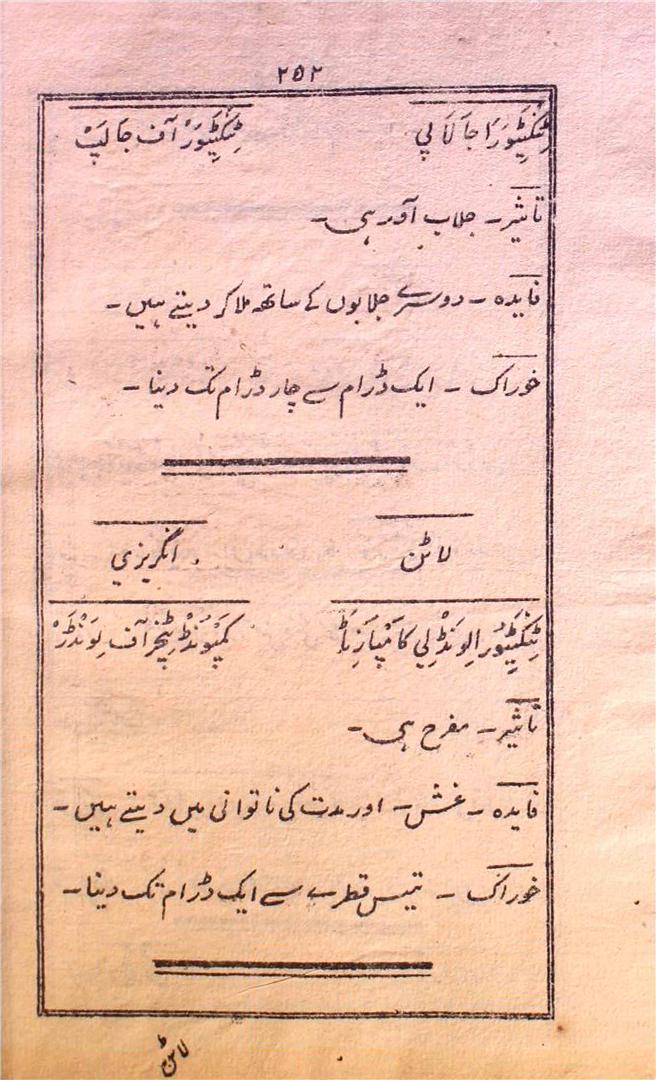 ۲۵۲
ٹِنکٹِیُورَا جَالَاپی ٹِنکٹِیُوَرْ آف جَالَپْ
تاثیر۔ جلاب آور ہی۔
فایدہ۔ دوسرے جلابوں کے ساتھ ملا کر دیتے ہیں۔
خوراک۔ ایک ڈرام سے چار ڈرام تک دینا۔
لاٹن انگریزی
ٹِنکٹِیُورا لِوَنْڈِلی کامْپازِٹَا کمپَونْڈ ٹِنچر آف لِوَنْڈَرْ
تاثیر۔ مفرح ہی۔
فایدہ۔ غش۔ اور مدت کی ناتوانی میں دیتے ہیں۔
خوراک۔ تیس قطرے سے ایک ڈرام تک دینا۔
لاٹن